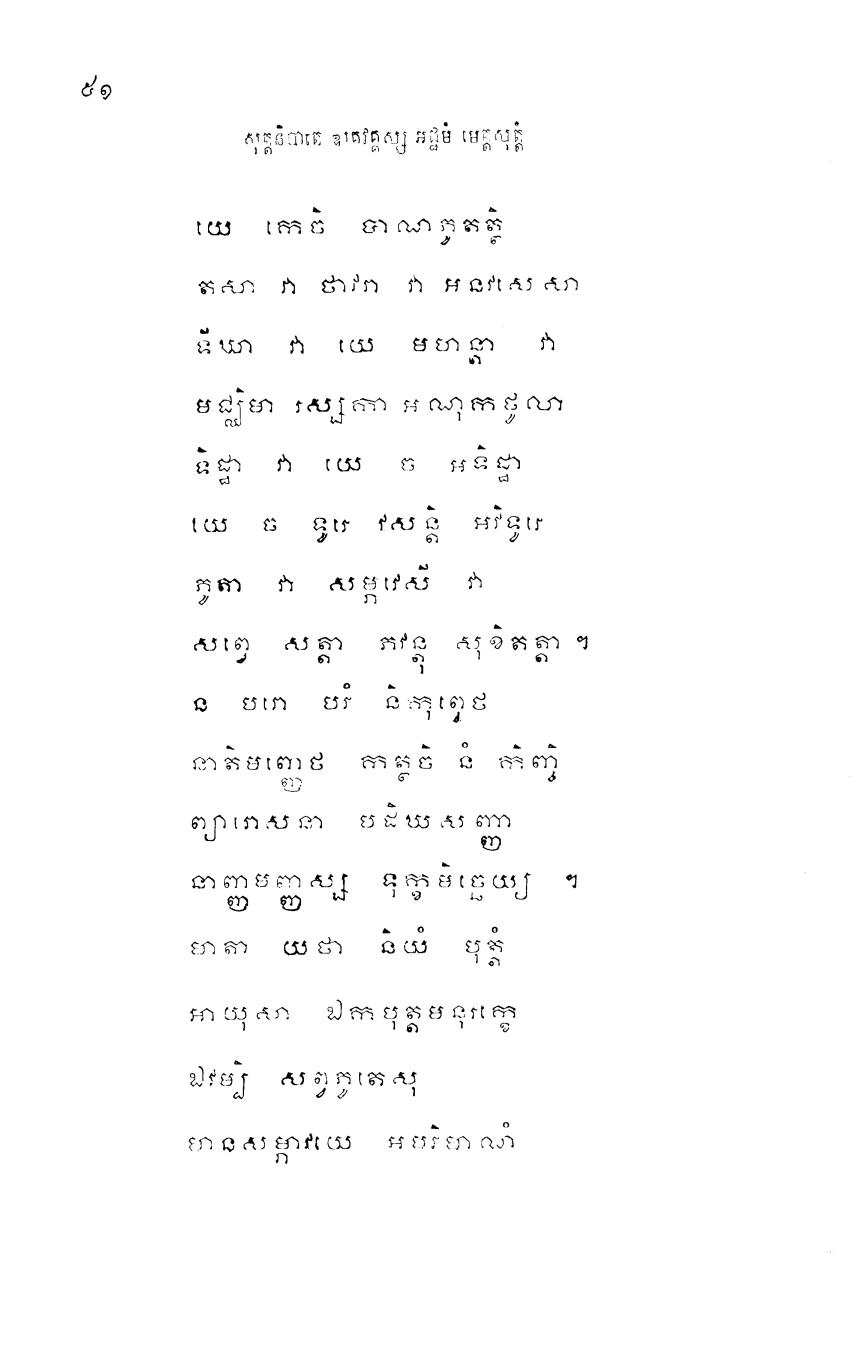 ៥១
សុត្តនិបាតេ ឧរគវគ្គស្ស អដ្ឋមំ មេត្តសុត្តំ
យេ កេចិ បាណភូតត្ថិ
តសា វា ថាវរា វា អនវសេសា
ទីឃា វា យេ មហន្តា វា
មជ្ឈិមា រស្សកា អណុកថូលា
ទិដ្ឋា វា យេ ច អទិដ្ឋា
យេ ច ទូរេ វសន្តិ អវិទូរេ
ភូតា វា សម្ភវេសី វា
សព្វេ សត្តា ភវន្តុ សុខិតត្តា ។
ន បរោ បរំ និកុព្វេថ
នាតិមញ្ញេថ កត្ថចិ នំ កិញ្ចិ
ព្យារោសនា បដិឃសញ្ញា
នាញ្ញមញ្ញស្ស ទុក្ខមិច្ឆេយ្យ ។
មាតា យថា និយំ បុត្តំ
អាយុសា ឯកបុត្តមនុរក្ខេ
ឯវម្បិ សព្វភូតេសុ
មានសម្ភាវយេ អបរិមាណំ